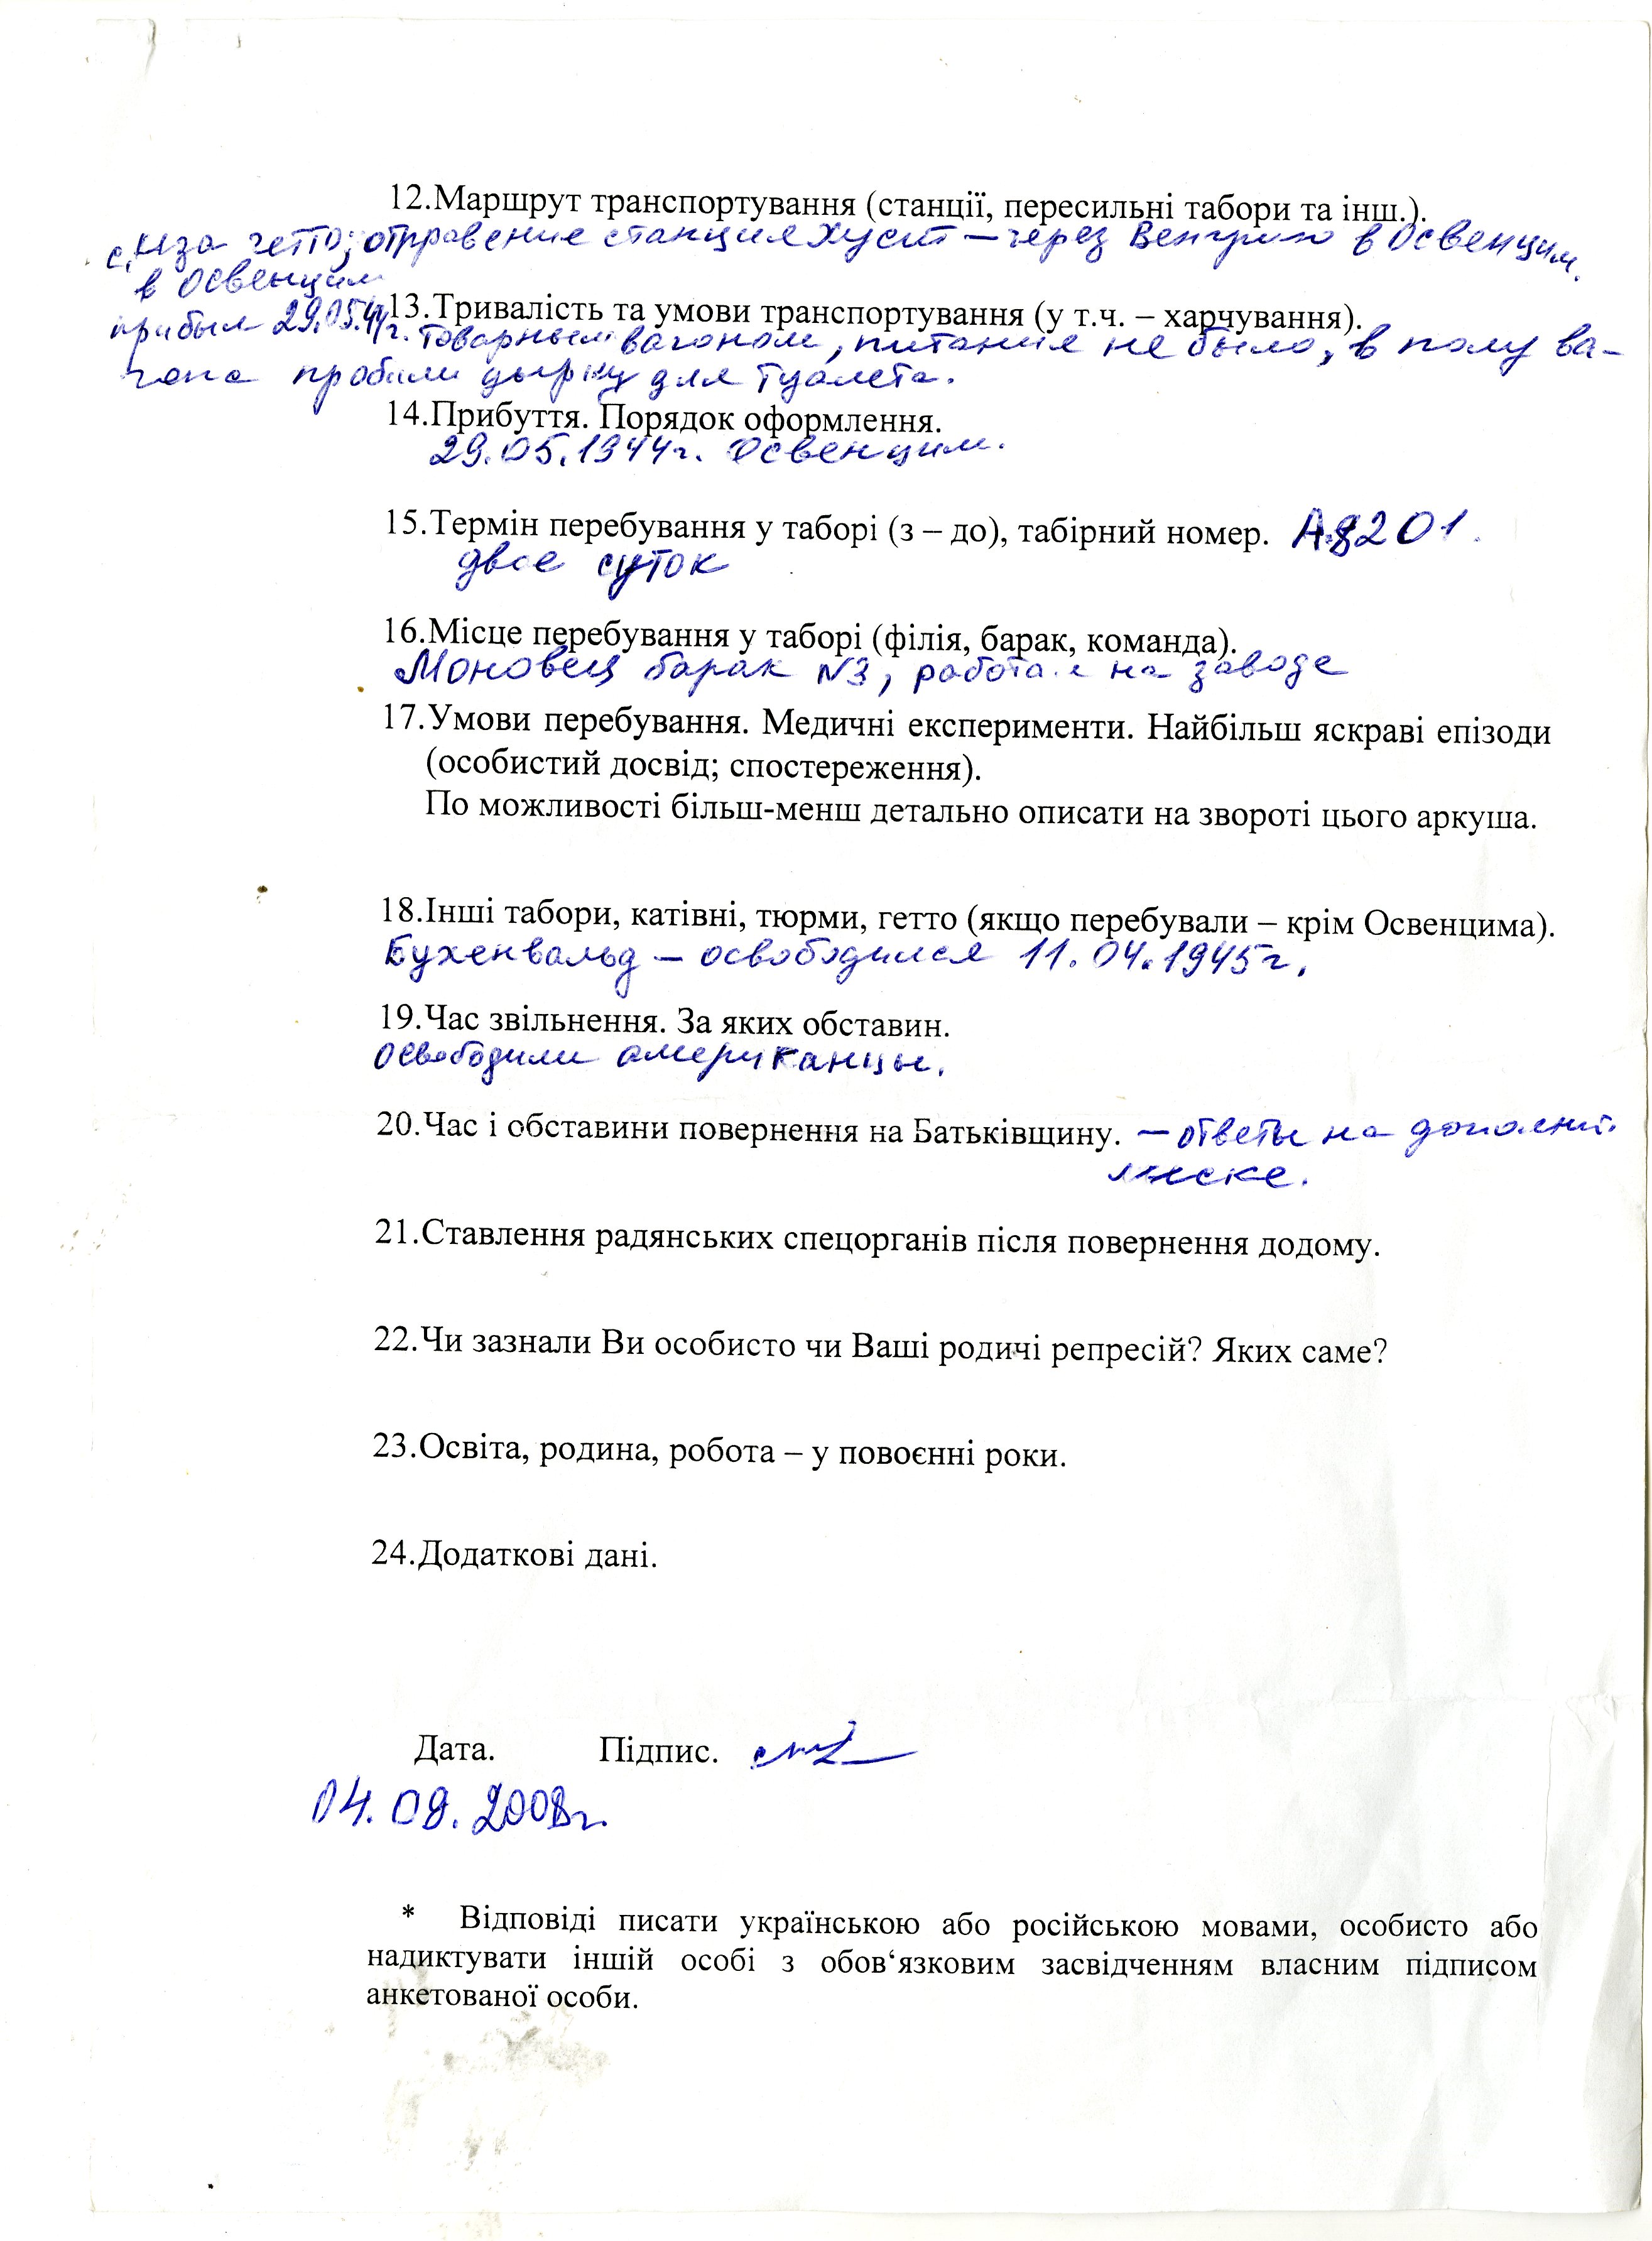 12.Маршрут транспортування (станції, пересильні табори та інш.).
с. Иза гетто; отправение станция Хуст – через Венгрию в Освенцим.
в Освенцим
прибыл 29.05.44г.
13.Тривалість та умови транспортування (у т.ч. – харчування).
Товарным вагоном, питания не было, в полу ва-
гона пробили дырку для туалета.
14.Прибуття. Порядок оформлення.
29.05.1944г. Освенцим.
15.Термін перебування у таборі (з – до), табірний номер.
двое суток
16.Місце перебування у таборі (філія, барак, команда).
Моновец барак N3, работал на заводе
17.Умови перебування. Медичні експерименти. Найбільш яскраві епізоди
(особистий досвід; спостереження).
По можливості більш-менш детально описати на звороті цього аркуша.
18.Інші табори, катівні, тюрми, гетто (якщо перебували – крім Освенцима).
Бухенвальд – освободился 11.04.1945г.
19.Час звільнення. За яких обставин.
Освободили американцы.
20.Час і обставини повернення на Батьківщину. – ответы на
21.Ставлення радянських спецорганів після повернення додому.
22.Чи зазнали Ви особисто чи Ваші родичі репресій? Яких саме?
23.Освіта, родина, робота – у повоєнні роки.
24.Додаткові дані.
Дата. Підпис.
04.09.2008г.
* Відповіді писати українською або російською мовами, особисто або
надиктувати іншій особі з обов‘язковим засвідченням власним підписом
анкетованої особи.